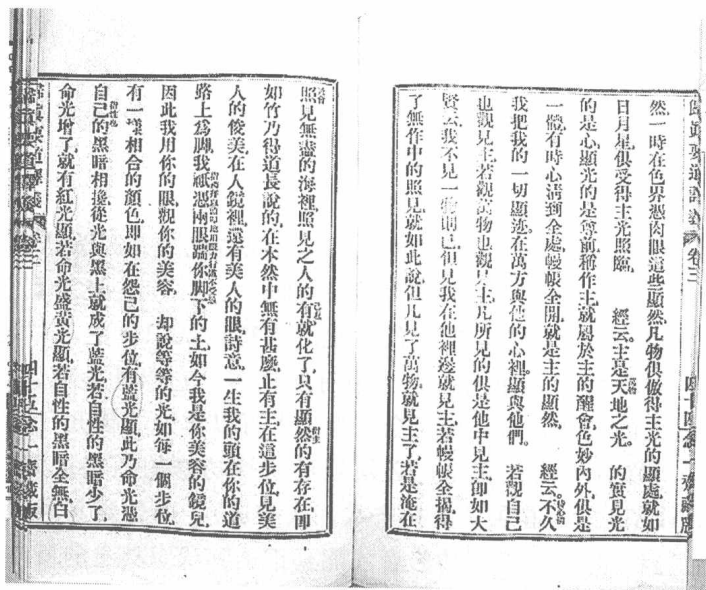 歸真要道譯義 卷三 四十四 念一齋藏版
然一時在色界憑肉眼這些顯然凡物俱倣得主光的顯處就如
日月星俱受得主光照臨 經云主是天地之光 的實見光
的是心顯光的是尊前稱作主就屬於主的醒會色妙內外俱是
一體有時心淸到全處幔帳全開就是主的顯然 經云不久
我把我的一切顯迹在萬方與他的心裡顯與他們 若觀自己
也觀見主若觀萬物也觀見主凡所見的俱是他中見主卽如大
賢云我不見一物則已但見我在他裡邊就見主若幔帳全揭得
了無作中的照見就如此說但凡見了萬物就見主了若是淹在
照見無盡的海裡照見之人的有就化了只有顯然的有存在卽
如竹乃得道長說的在本然中無有甚麽止有主在這步位見美
人的俊美在人鏡裡還有美人的眼詩意一生我的頭在你的道
路上爲脚我祇憑兩眼踹你脚下的土如今我是你美容的鏡兒
因此我用你的眼觀你的美容 却說等等的光如每一個步位
有一樣相合的顏色卽如在怨己的步位有藍光顯此乃命光憑
自己的黑暗相攙從光與黑上就成了藍光若自性的黑暗少了
命光增了就有紅光顯若命光盛黃光顯若自性的黑暗全無白
歸真要道譯義 卷三 四十五 念一齋藏版